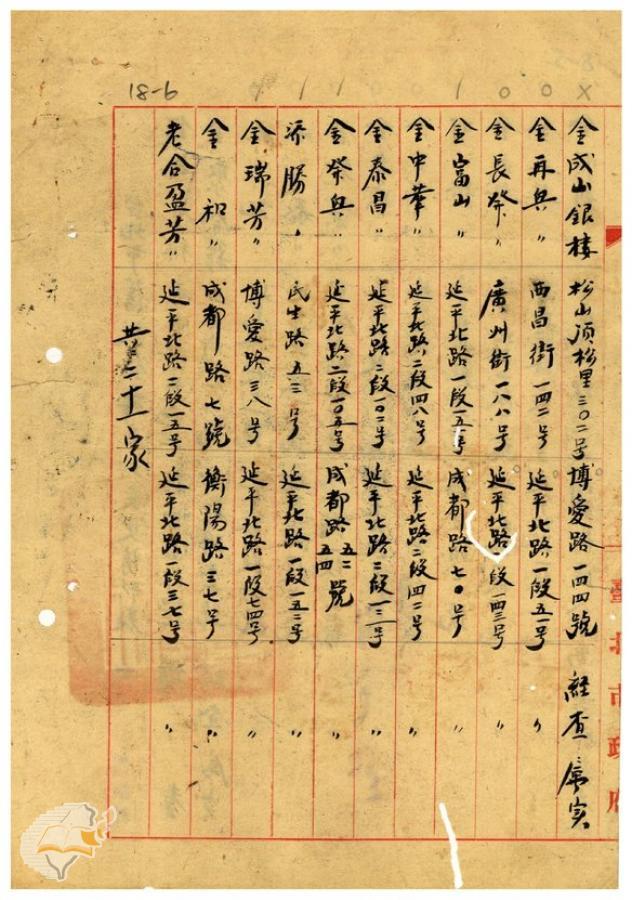 18-6 1 1 1 0 0 1 0 0 X
金成山銀樓 松山頂松里三〇二号 博愛路一四四號 経查屬实
金再興〃 西昌街一四二号 延平北路一段五一号 〃
金長發〃 廣州街一八八号 延平北路一段一四三号 〃
金富山〃 延平北路一段一五号 成都路七〇号 〃
金中華〃 延平北路二段四八号 延平北路二段四二号 〃
金泰昌〃 延平北路二段一〇二号 延平北路二段一三号 〃
金榮興〃 延平北路二段一〇五号 成都路五二五四號 〃
添勝〃 民生路五三号 延平北路一段一五二号 〃
金瑞芳〃 博愛路三八号 延平北路一段七四号 〃
金和〃 成都路七號 衡陽路三七号 〃
老合盈芳〃 延平北路一段一五号 延平北路一段三七号 〃
共二十一家
臺北市政府